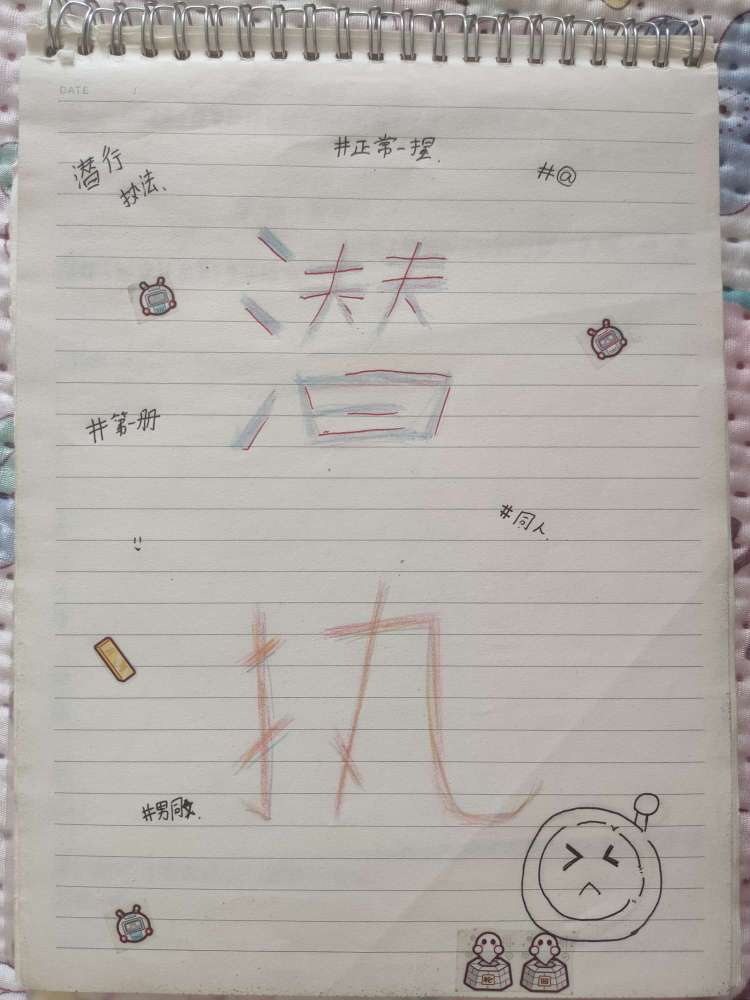 DATE /
#正常一捏.
潜行
抄法.
#@
潜
#第一册
#同人
执
#男同